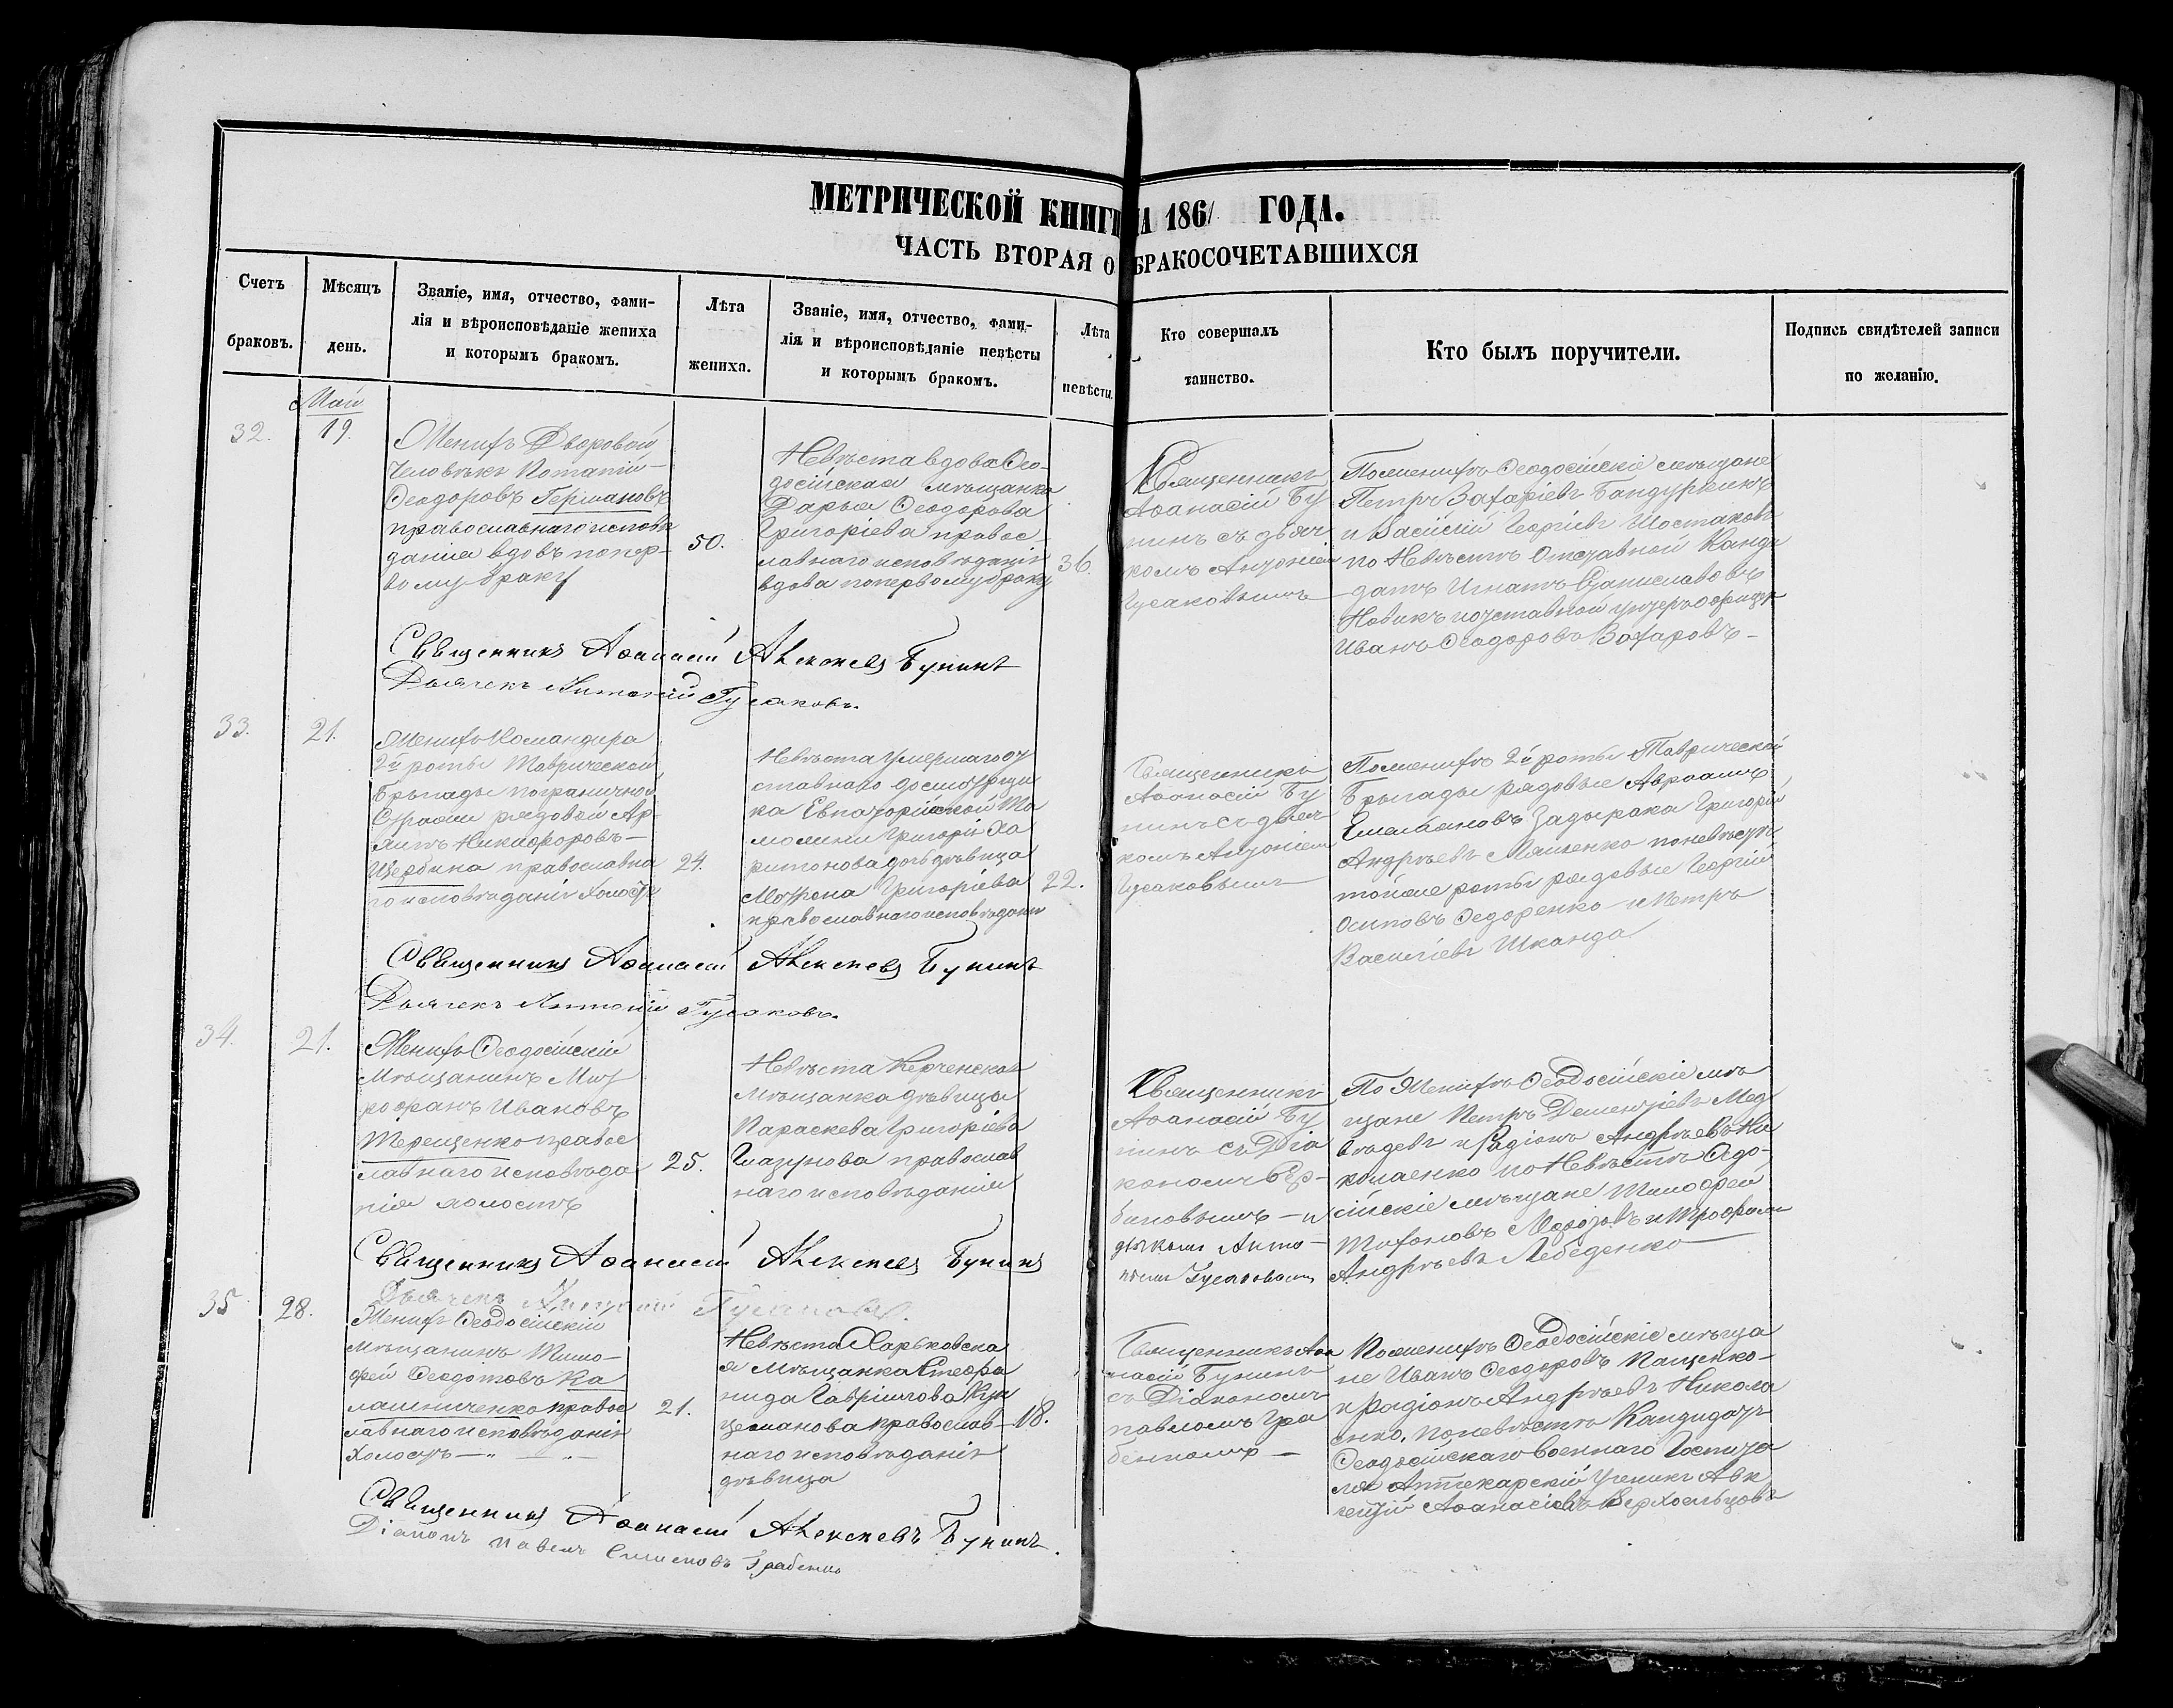 МЕТРИЧЕСКОЙ КНИГИ НА 1861 ГОДА.
ЧАСТЬ ВТОРАЯ О БРАКОСОЧЕТАВШИХСЯ
Счетъ
браковъ.
Мѣсяцъ
день.
Званіе, имя, отчество, фами-
лія и вѣроисповѣданіе жениха
и которымъ бракомъ.
Лѣта
жениха.
Званіе, имя, отчество, фами-
лія и вѣроисповѣданіе невѣсты
и которымъ бракомъ.
Лѣта
невѣсты.
Кто совершалъ
таинство.
Кто былъ поручители.
Подпись свидѣтелей записи
по желанію.
Май
32.
19.
Женихъ Дворовой
человѣкъ Потапій
Ѳеодоровъ Германовъ
православнаго исповѣ
данія вдовъ попер-
вому браку
50.
Невѣста вдова Ѳео-
досійская мѣщанка
Дарья Ѳеодорова
Григоріева правос-
лавнаго исповѣданія
вдова попервому браку
36.
Священникъ
Аѳанасій Бу
нинъ съ дьяч
комъ Антоніем
Гусаковымъ
Пожениху Ѳеодосійскіе мѣщане
Петръ Захаріевъ Бандуркинъ
и Василій Георгіевъ Шостаковъ
по Невѣстѣ Отставной Канди
датъ Игнатъ Станиславовъ
Новикъ и отставной унтеръ офицеръ
Иванъ Ѳеодоровъ Захаровъ
Священникъ Аѳанасій Алексѣевъ Бунинъ
Дьячекъ Антоній Гусаковъ.
33.
21.
Женихъ Командира
2й роты Таврической
Бригады пограничной
Стражи рядовой Ар-
хипъ Никифоровъ
Щербина православна
го исповѣданія холостъ
24.
Невѣста умершаго от
ставнаго досмотрщи
ка Евпаторійской Та
можни Григорія Ха
ритонова дочь дѣвица
Матрона Григоріева
православнаго исповѣданія
22.
Священникъ
Аѳанасій Бу
нинъ съ дьяч
комъ Антоніем
Гусаковымъ
Пожениху 2й роты Таврической
Бригады рядовые Авраамъ
Емельяновъ Задырака Григорій
Андрѣевъ поневѣстѣ
тойже роты рядовые Георгій
Осиповъ Ѳедоренко и Петръ
Василіевъ Шканда
Священникъ Аѳанасій Алексѣевъ Бунинъ
Дьячекъ Антоній Гусаковъ.
34.
21.
Женихъ Ѳеодосійскій
Мѣщанинъ Мит
рофанъ Ивановъ
Терещенко правос
лавнаго исповѣда
нія холостъ
25.
Невѣста Керченская
мѣщанка дѣвица
Параскева Григоріева
Глазунова православ
наго исповѣданія
Священникъ
Аѳанасій Бу
нинъ съ Діа
кономъ Сер-
биновымъ и
дячкомъ Анто-
ніемъ Гусаковымъ
По Жениху Ѳеодосійскіе мѣ
щане Петръ Дементіевъ Мед
вѣдевъ и Радіонъ Андрѣевъ Ни
колаенко по Невѣстѣ Ѳеодо-
сійскіе мѣщане Тимоѳей
Морозовъ и Трофимъ
Андрѣевъ Лебеденко
Священникъ Аѳанасій Алексѣевъ Бунинъ
Дьячекъ Антоній Гусаковъ.
35
28.
Женихъ Ѳеодосійскій
мѣщанинъ Тимо-
фей Ѳеодотовъ Ка
лашниченко правос
лавнаго исповѣданія
Холостъ
21.
Невѣста Харьковска
я мѣщанка Стефа
нида Гавріилова Куп
цеманова православ-
наго исповѣданія
дѣвица
18.
Священникъ Аѳа
насій Бунинъ
съ Діакономъ
Павломъ Гра
бенкомъ
Пожениху Ѳеодосійскіе мѣща
не Иванъ Ѳеодоровъ Пащенко
и Радіонъ Андрѣевъ Никола
енко. Поневѣстѣ Кандидатъ
Ѳеодосійскаго военнаго Госпита
ля Аптекарскій Ученикъ Авк
сентій Аѳанасіевъ Верхосельцовъ
Священникъ Аѳанасій Алексѣевъ Бунинъ.
Діаконъ Павелъ Симеоновъ Грабенко